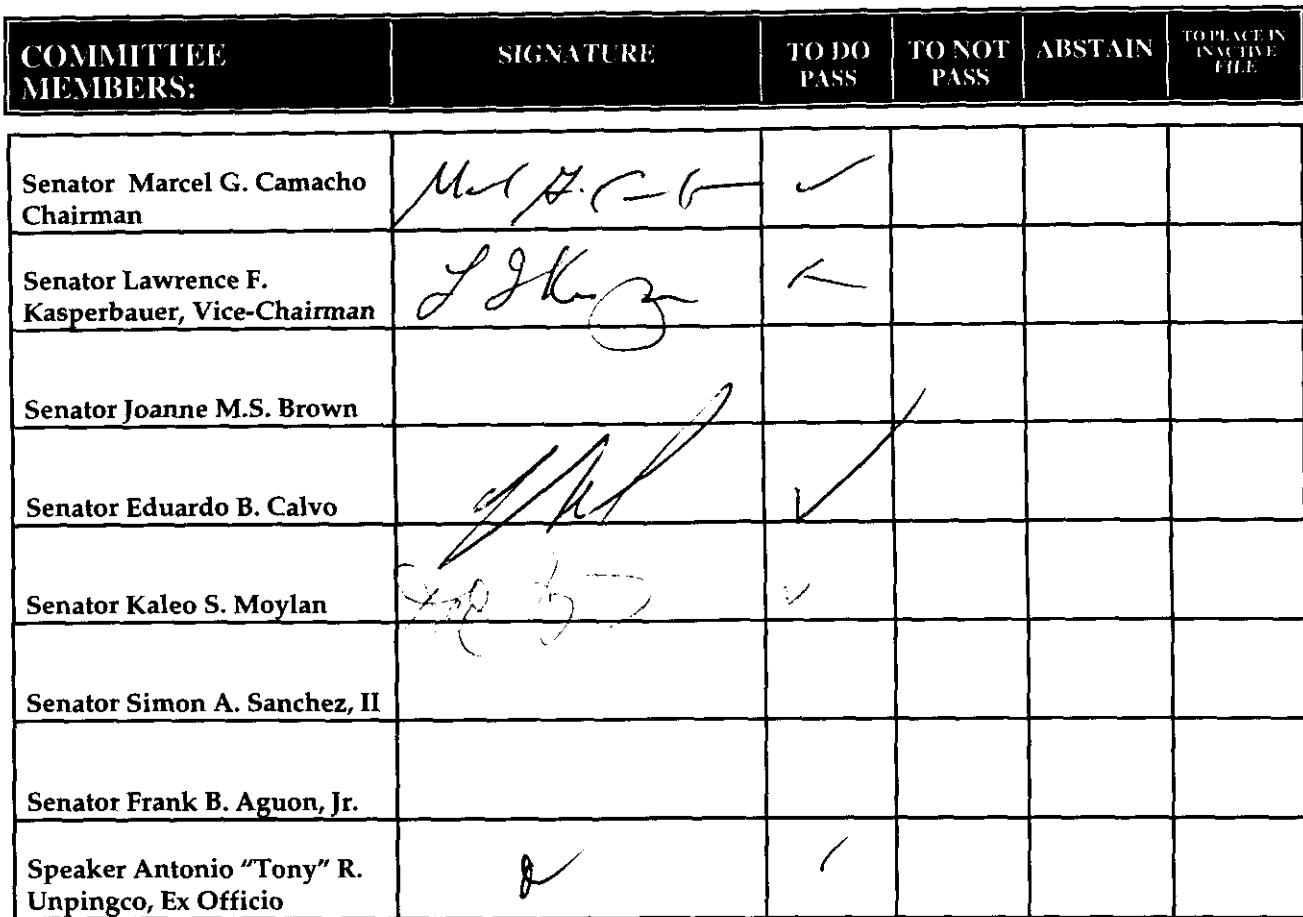 COMMITTEE MEMBERS: SIGNATURE TO DO PASS TO NOT PASS ABSTAIN TO PLACE IN INACTIVE FILE
Senator Marcel G. Camacho
Chairman
Senator Lawrence F.
Kasperbauer, Vice-Chairman
Senator Joanne M.S. Brown
Senator Eduardo B. Calvo
Senator Kaleo S. Moylan
Senator Simon A. Sanchez, II
Senator Frank B. Aguon, Jr.
Speaker Antonio "Tony" R.
Unpingco, Ex Officio